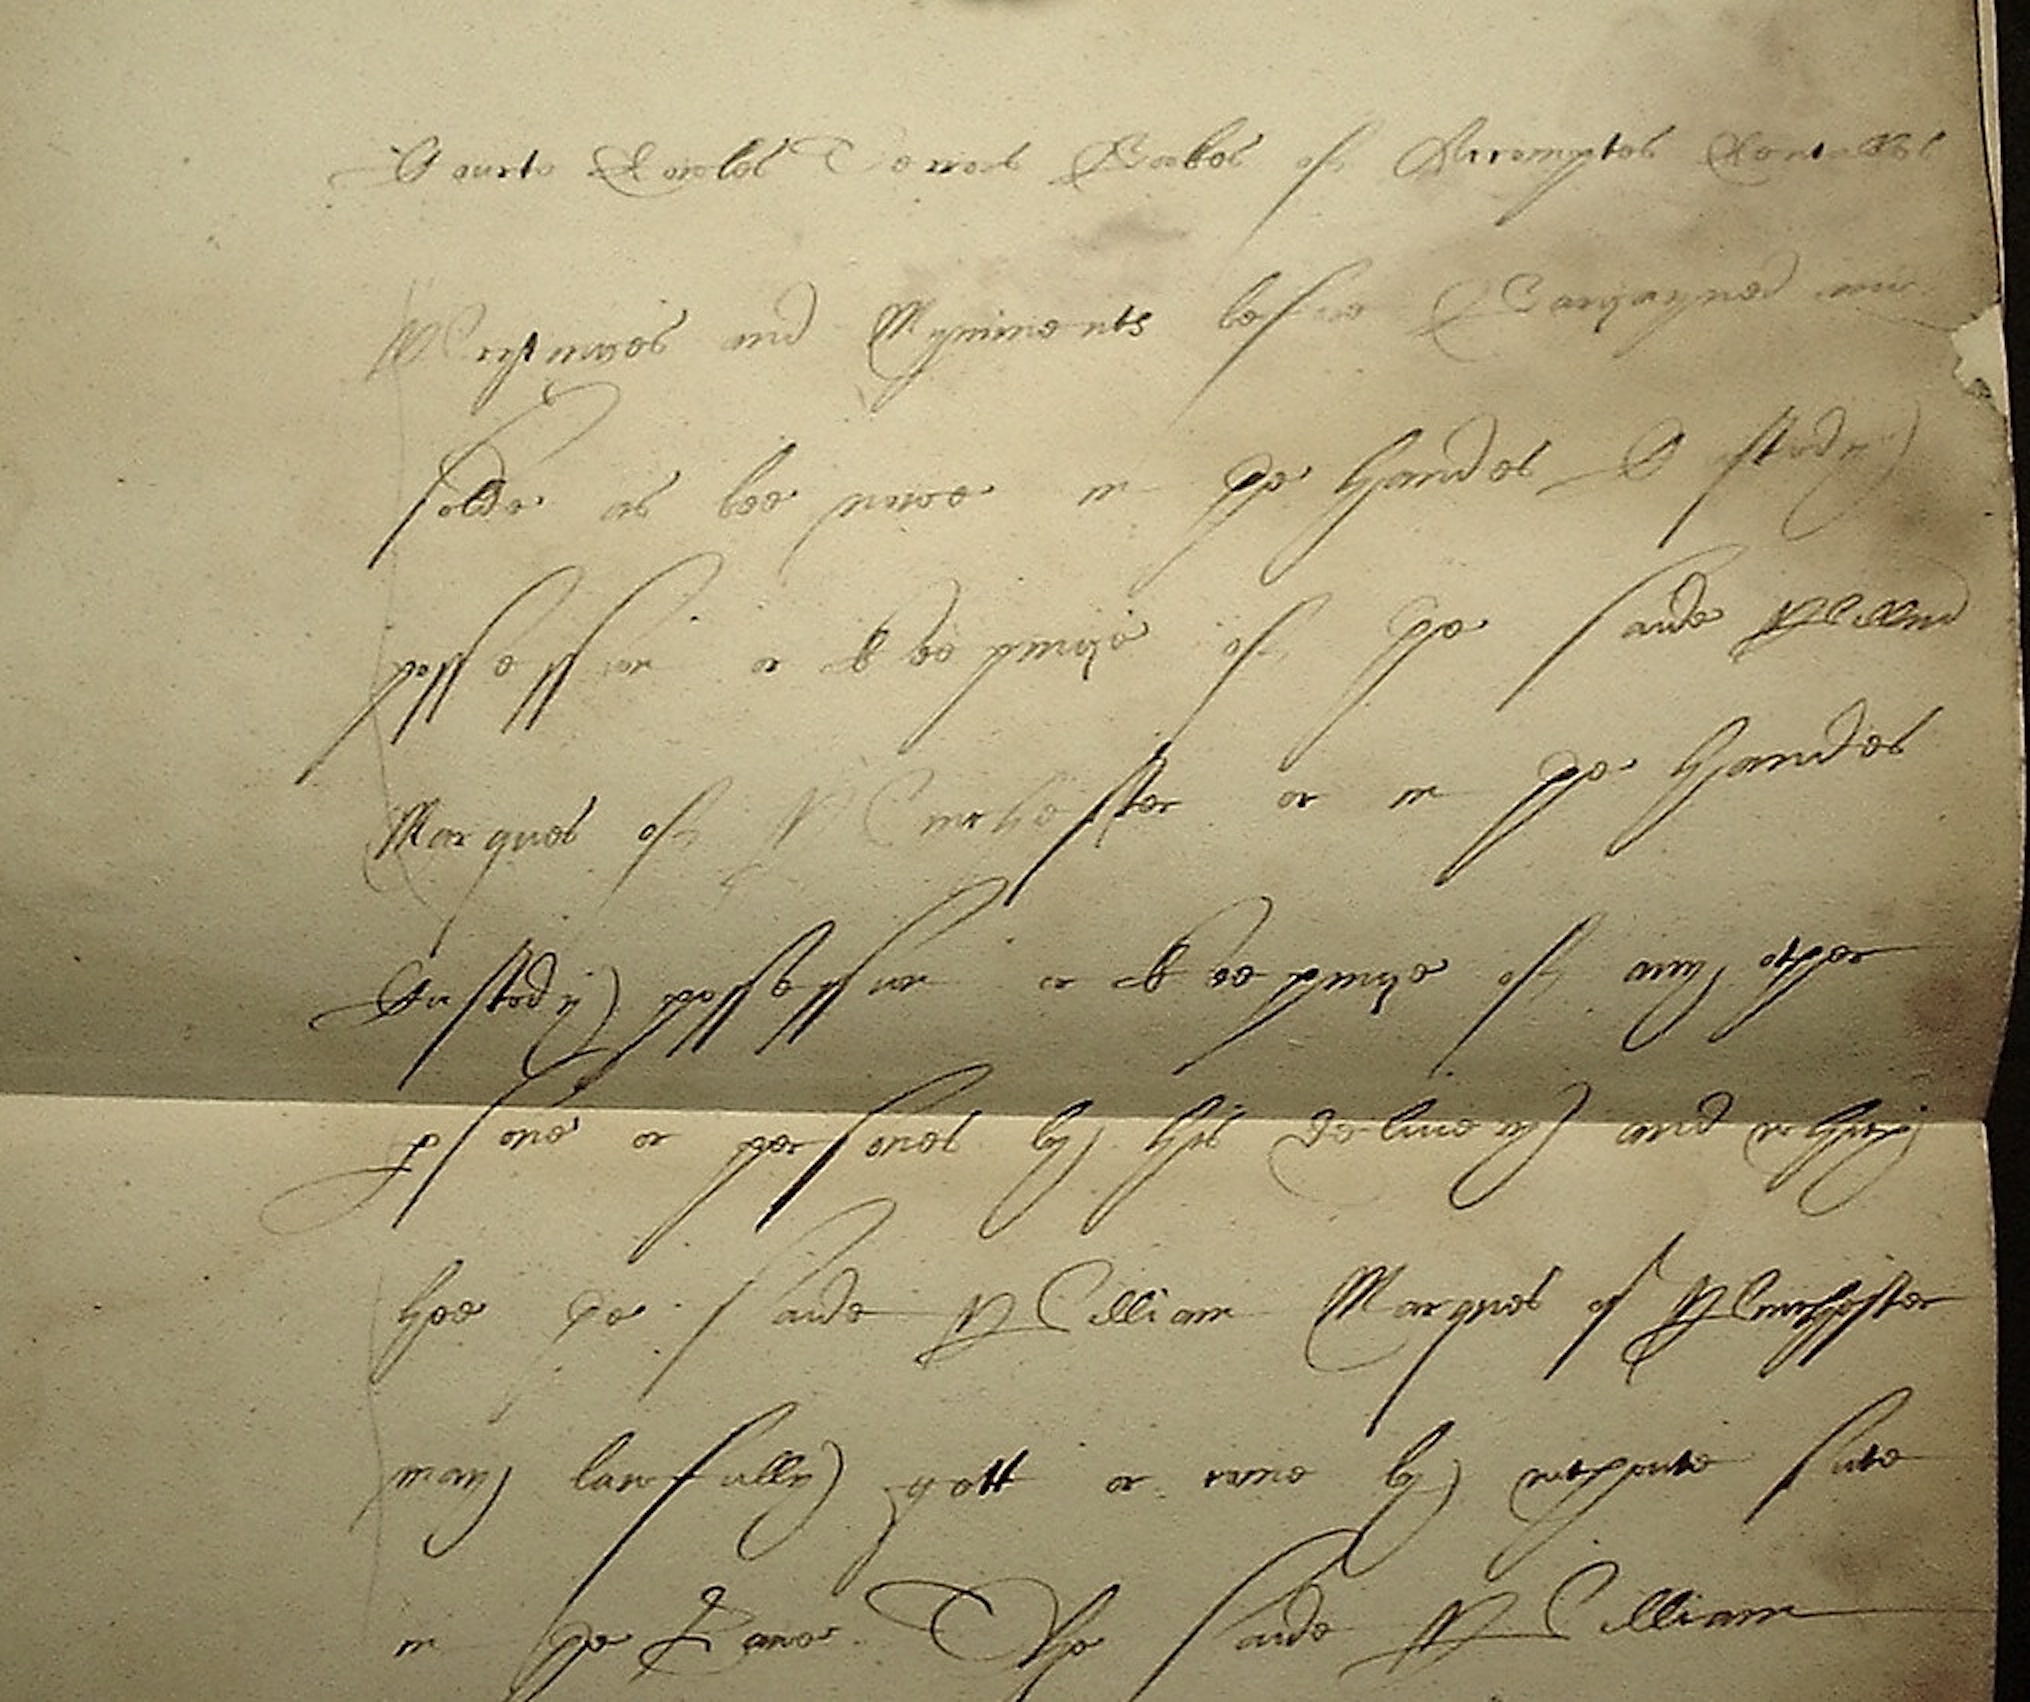 Courte Rooles Bookes of Accomptes Rentalles
Wrytinges and Mynimentes before Bargayned and
solde as bee nowe in the handes Custody
possession or keepinge of the saide William
Marques of Winchester or in the handes
Custody possession or keepinge of any other
psone or persones by his delivery and whiche
hee the saide William Marques of Winchester
may lawfully gett or come by withoute sute
in the Lawe. The saide William